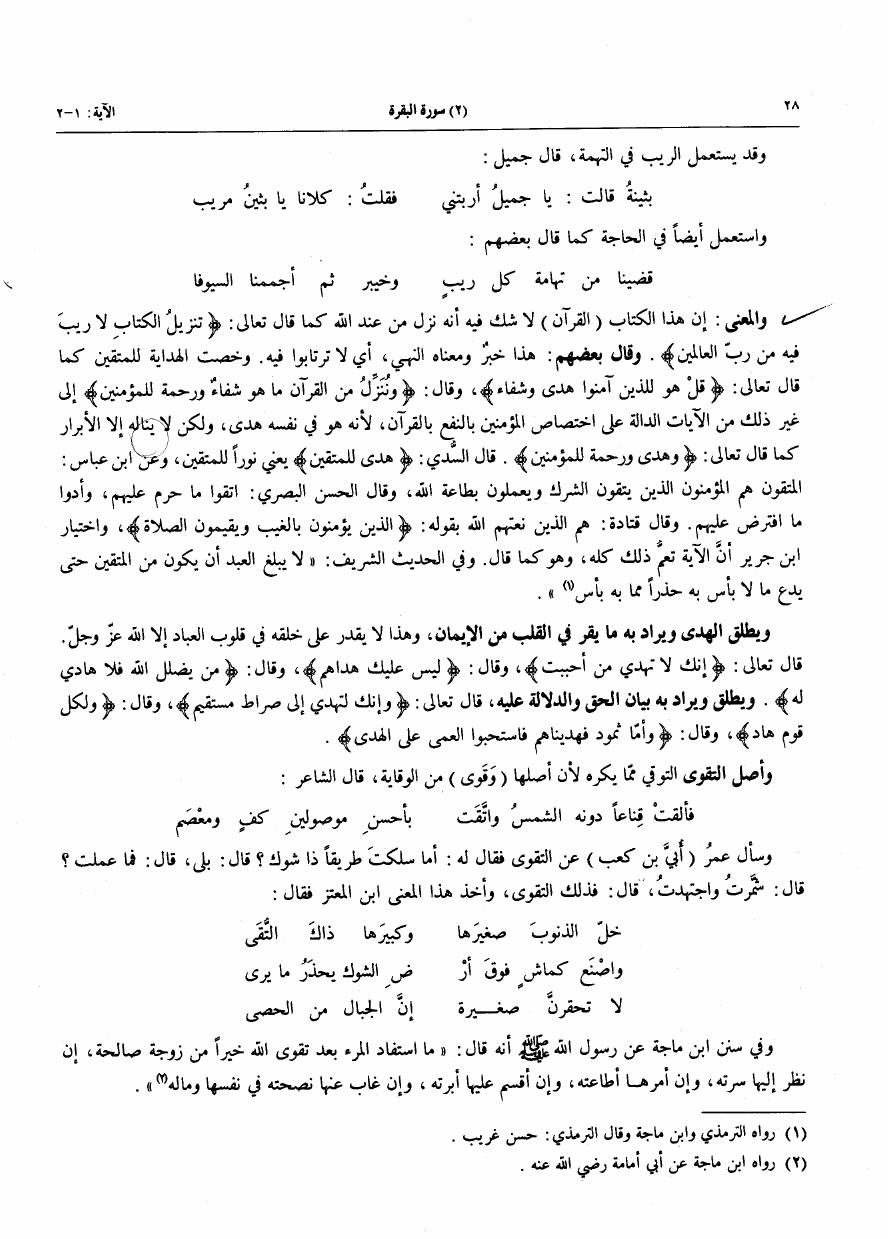 ٢٨ (٢) سورة البقرة الآية: ١-٢
وقد يستعمل الريب في التهمة، قال جميل :
بثينةُ قالت : يا جميلُ أربتني فقلتُ : كلانا يا بثينُ مريب
واستعمل أيضاً في الحاجة كما قال بعضهم :
قضينا من تهامة كل ريبٍ وخيبر ثم أجممنا السيوفا
والمعنى : إن هذا الكتاب ( القرآن ) لا شك فيه أنه نزل من عند الله كما قال تعالى: ﴿ تنزيلُ الكتابِ لا ريبَ
فيه من ربّ العالمين﴾ . وقال بعضهم: هذا خبرٌ ومعناه النهي، أي لا ترتابوا فيه. وخصت الهداية للمتقين كما
قال تعالى: ﴿ قلْ هو للذين آمنوا هدى وشفاء﴾، وقال: ﴿ ونُنَزِّلُ من القرآن ما هو شفاءٌ ورحمة للمؤمنين﴾ إلى
غير ذلك من الآيات الدالة على اختصاص المؤمنين بالنفع بالقرآن، لأنه هو في نفسه هدى، ولكن لا يناله إلا الأبرار
كما قال تعالى: ﴿ وهدى ورحمة للمؤمنين﴾ . قال السُّدي: ﴿ هدى للمتقين﴾ يعني نوراً للمتقين، وعن ابن عباس:
المتقون هم المؤمنون الذين يتقون الشرك ويعملون بطاعة الله، وقال الحسن البصري: اتقوا ما حرم عليهم، وأدوا
ما افترض عليهم. وقال قتادة: هم الذين نعتهم الله بقوله: ﴿ الذين يؤمنون بالغيب ويقيمون الصلاة﴾، واختيار
ابن جرير أنَّ الآية تعمُّ ذلك كله، وهو كما قال. وفي الحديث الشريف: « لا يبلغ العبد أن يكون من المتقين حتى
يدع ما لا بأس به حذراً مما به بأس(١) » .
ويطلق الهدى ويراد به ما يقر في القلب من الإيمان، وهذا لا يقدر على خلقه في قلوب العباد إلا الله عزّ وجلّ.
قال تعالى: ﴿ إنك لا تهدي من أحببت﴾، وقال: ﴿ ليس عليك هداهم﴾، وقال: ﴿ من يضلل الله فلا هادي
له﴾ . ويطلق ويراد به بيان الحق والدلالة عليه، قال تعالى: ﴿ وإنك لتهدي إلى صراط مستقيم﴾، وقال: ﴿ ولكل
قوم هاد﴾، وقال: ﴿ وأمّا ثمود فهديناهم فاستحبوا العمى على الهدى﴾ .
وأصل التقوى التوقي ممّا يكره لأن أصلها ( وَقَوى ) من الوقاية، قال الشاعر :
فألقتْ قِناعاً دونه الشمسُ واتَّقَت بأحسنِ موصولينِ كفٍ ومعْصَم
وسأل عمرُ ( أُبيَّ بن كعب ) عن التقوى فقال له : أما سلكتَ طريقاً ذا شوك؟ قال: بلى، قال: فما عملت ؟
قال: شمَّرتُ واجتهدتُ، قال: فذلك التقوى، وأخذ هذا المعنى ابن المعتز فقال :
خلّ الذنوبَ صغيرَها وكبيرَها ذاكَ التُّقَى
واصْنَع كماشٍ فوقَ أرْ ضِ الشوك يحذَرُ ما يرى
لا تحقرنَّ صغــيرة إنَّ الجبال من الحصى
وفي سنن ابن ماجة عن رسول الله ﷺ أنه قال: « ما استفاد المرء بعد تقوى الله خيراً من زوجة صالحة، إن
نظر إليها سرته، وإن أمرهـا أطاعته، وإن أقسم عليها أبرته ، وإن غاب عنها نصحته في نفسها وماله(٢)» .
(١) رواه الترمذي وابن ماجة وقال الترمذي: حسن غريب .
(٢) رواه ابن ماجة عن أبي أمامة رضي الله عنه .